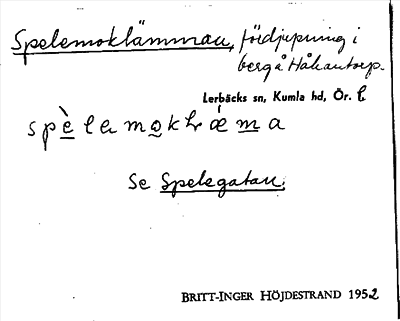 Spelemoklämman, fördjupning i
berg å Håkantorp.
Lerbäcks sn, Kumla hd, Ör. l.
spè̱lemo̱kɫǽm̱a
Se Spelegatan.
BRITT-INGER HÖJDESTRAND 1952